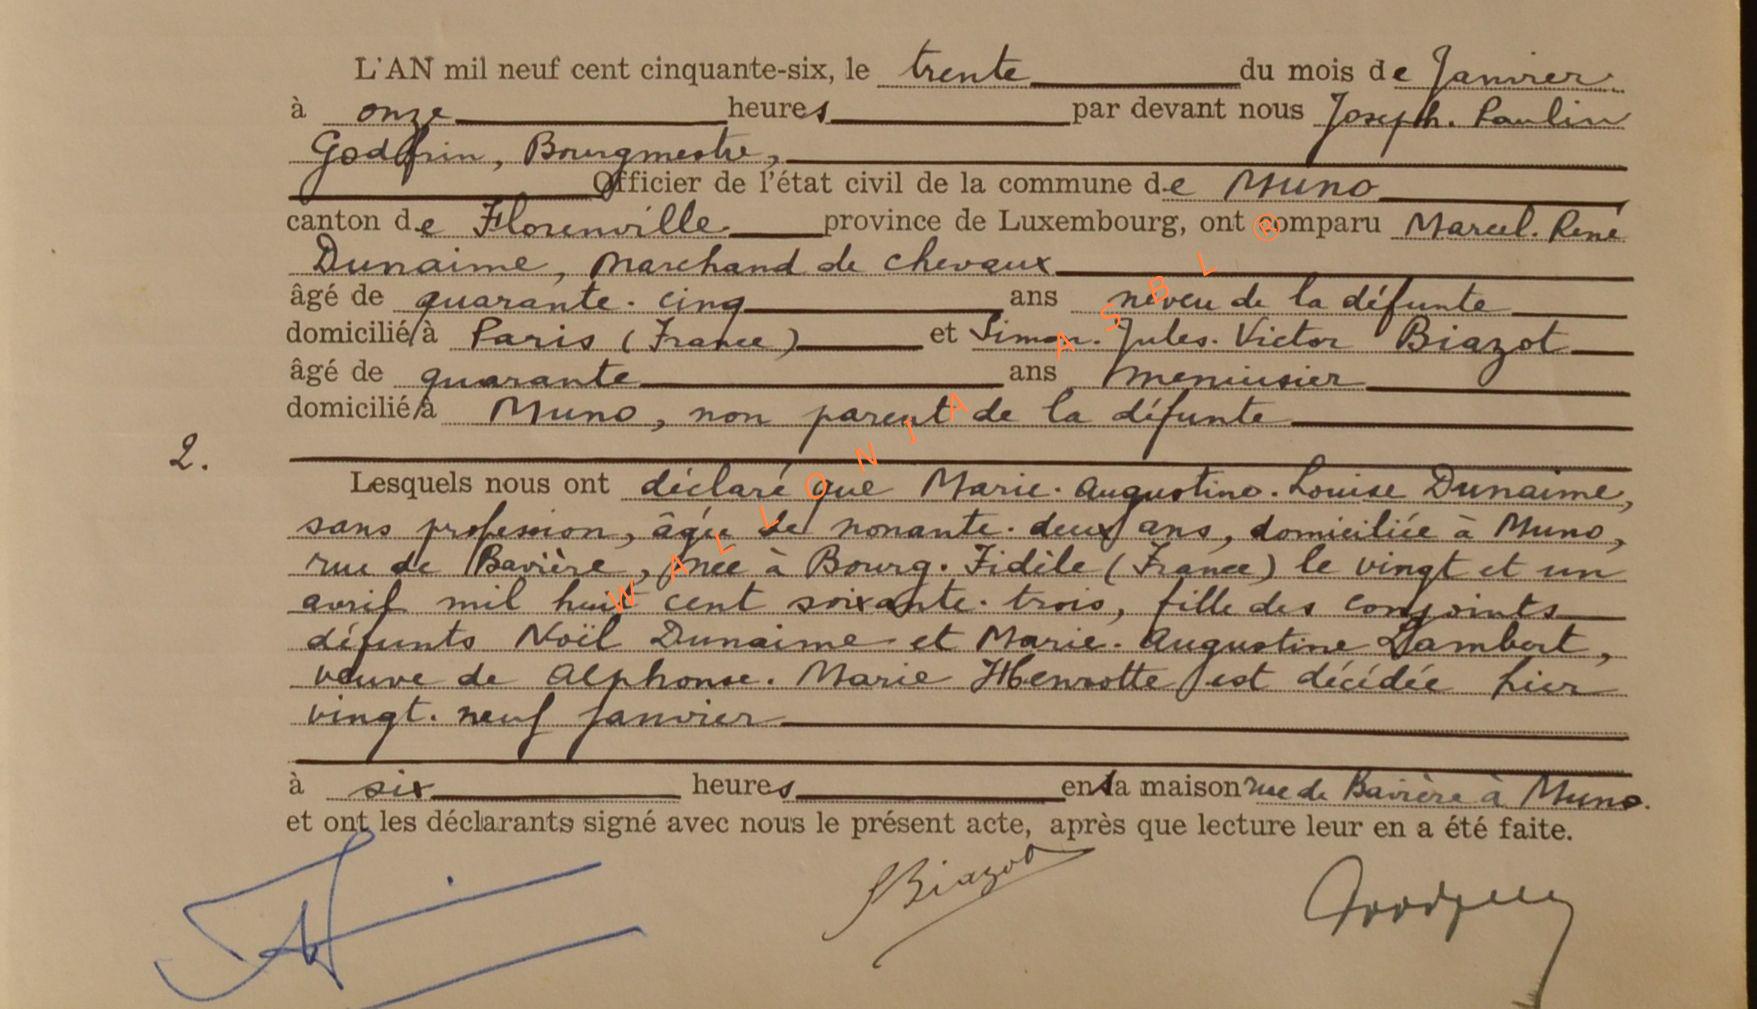 L'AN mil neuf cent cinquante-six, le trente du mois de Janvier
à onze heures par devant nous Joseph. Paulin
Godfrin, Bourgmestre,
Officier de l'état civil de la commune de Muno
canton de Florenville province de Luxembourg, ont comparu Marcel. René
Dunaime, Marchand de chevaux
âgé de quarante. cinq ans neveu de la défunte
domicilié à Paris (France) et Simon. Jules. Victor Biazot
âgé de quarante ans menuisier
domicilié à Muno, non parent de la défunte
2.
Lesquels nous ont déclaré que Marie. Augustine. Louise Dunaime,
sans profession, âgée de nonante. deux ans, domiciliée à Muno,
rue de Bavière, née à Bourg. Fidèle (France) le vingt et un
avril mil huit cent soixante. trois, fille des conjoints
défunts Noël Dunaime et Marie. Augustine Lambert,
veuve de Alphonse. Marie Henrotte est décédée hier
vingt. neuf janvier
à six heures en la maison rue de Bavière à Muno.
et ont les déclarants signé avec nous le présent acte, après que lecture leur en a été faite.
Biazot
WALLONIA ASBL ®